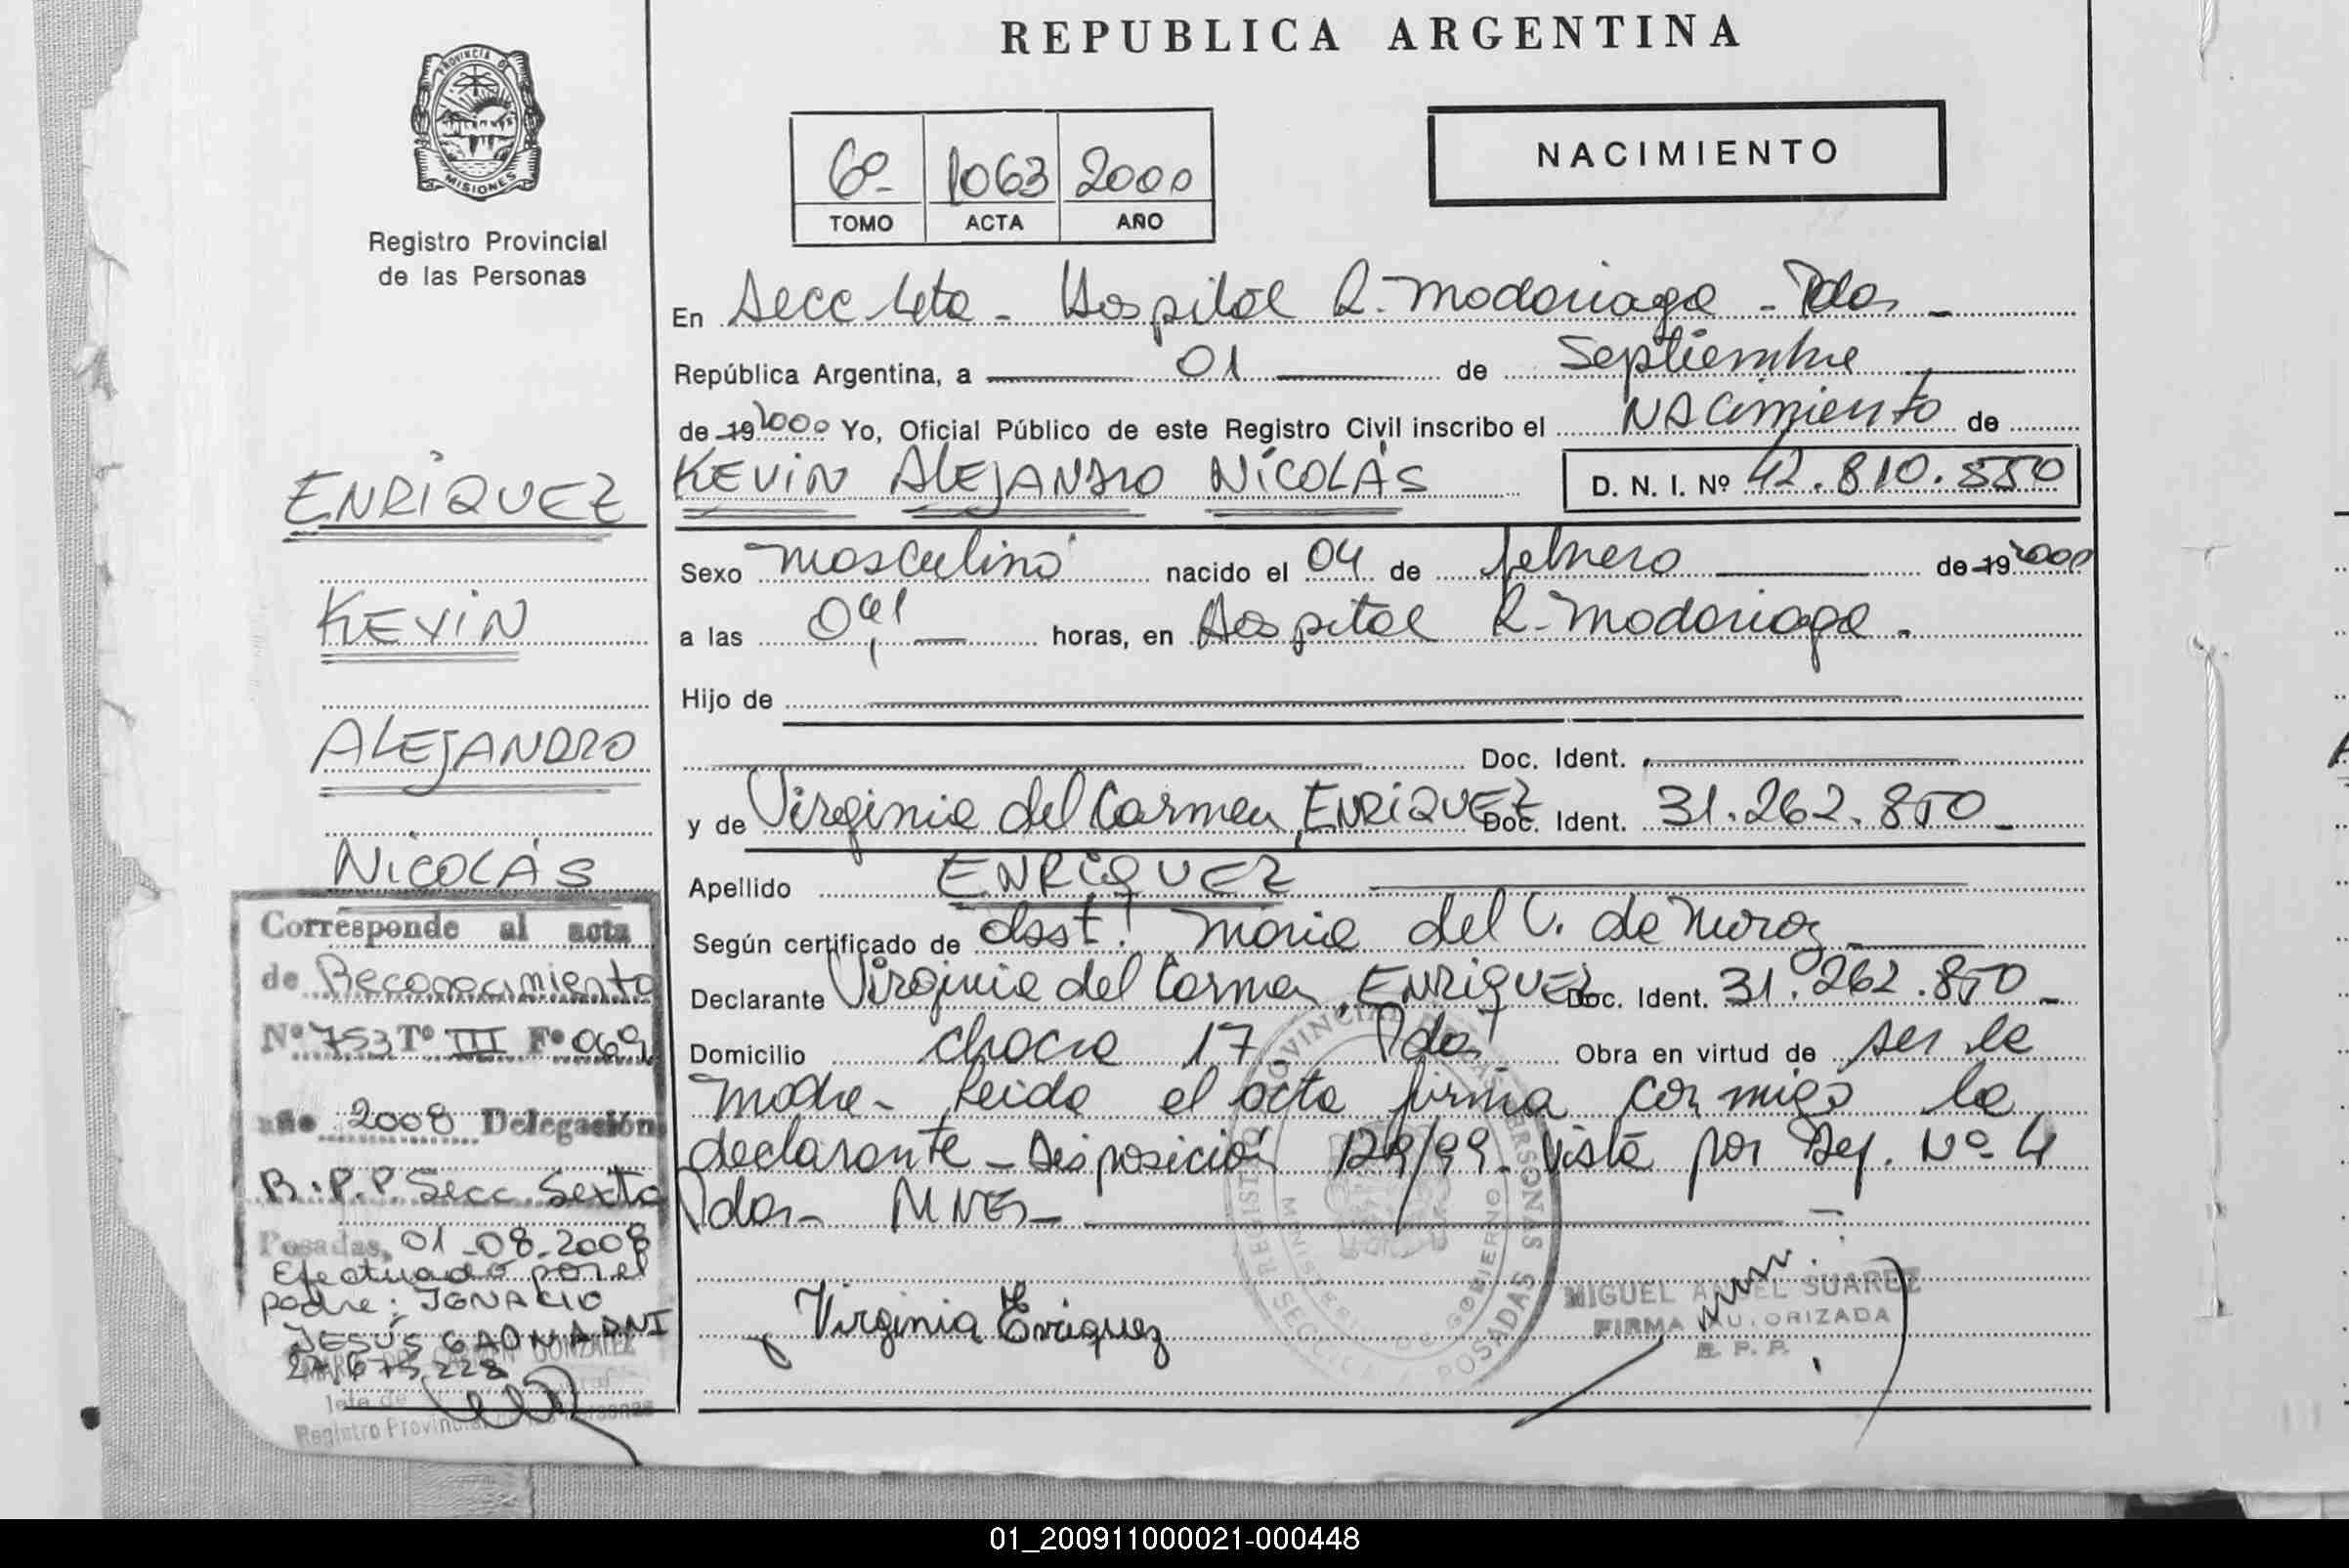 REPUBLICA ARGENTINA
PROVINCIA DE
MISIONES
Registro Provincial
de las Personas
NACIMIENTO
6º 1063 2000
TOMO ACTA AÑO
En Secc 4ta - Hospital R. Madariaga - Pdas -
República Argentina, a 01 de Septiembre
de 19 2000 Yo, Oficial Público de este Registro Civil inscribo el NAcimiento de
KEVIN ALEJANDRO NICOLÁS D. N. I. Nº 42.810.550
Sexo masculino nacido el 04 de febrero de 19 2000
a las horas, en Hospital R. Madariaga -
Hijo de
Doc. Ident.
y de Virginia del Carmen ENRIQUEZ Doc. Ident. 31.262.850 -
Apellido ENRIQUEZ
Según certificado de obst. Maria del C. de
Declarante Virginia del Carmen ENRIQUEZ Doc. Ident. 31.262.850 -
Domicilio chacra 17 - Pdas Obra en virtud de ser la
madre - Leida el acta firma conmigo la
declarante - Disposición 129/99 - Vista por Def. Nº 4
Pdas - MNES -
Virginia Enriquez
MIGUEL ANGEL SUAREZ
FIRMA AUTORIZADA
R. P. P.
REGISTRO PROVINCIAL DE LAS PERSONAS
MINISTERIO DE GOBIERNO
SECCION POSADAS
ENRIQUEZ
KEVIN
ALEJANDRO
NICOLÁS
Corresponde al acta
de Reconocimiento
Nº 753 Tº III Fº 069
año 2008 Delegación
R.P.P. Secc. Sexta
Posadas, 01-08-2008
Efectuado por el
padre: IGNACIO
JESÚS GAONA DNI
27.675.228
GONZALEZ
Jefe de
Registro Provincial de las Personas
01_200911000021-000448